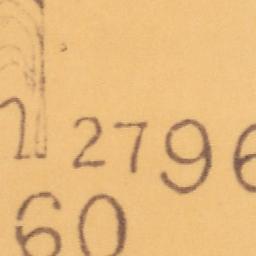 2796
60